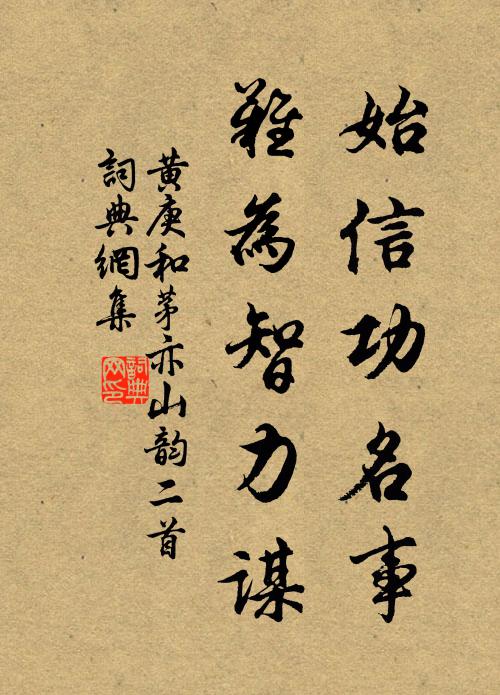 始信功名事
難為智力謀
黃庚和茅亦山韵二首
詞典網集
詞典网印